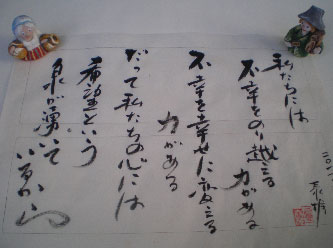 私たちには
不幸をのり越える
力がある
不幸を幸せに変える
力がある
だって私たちの心には
希望という
泉が湧いて
いるから